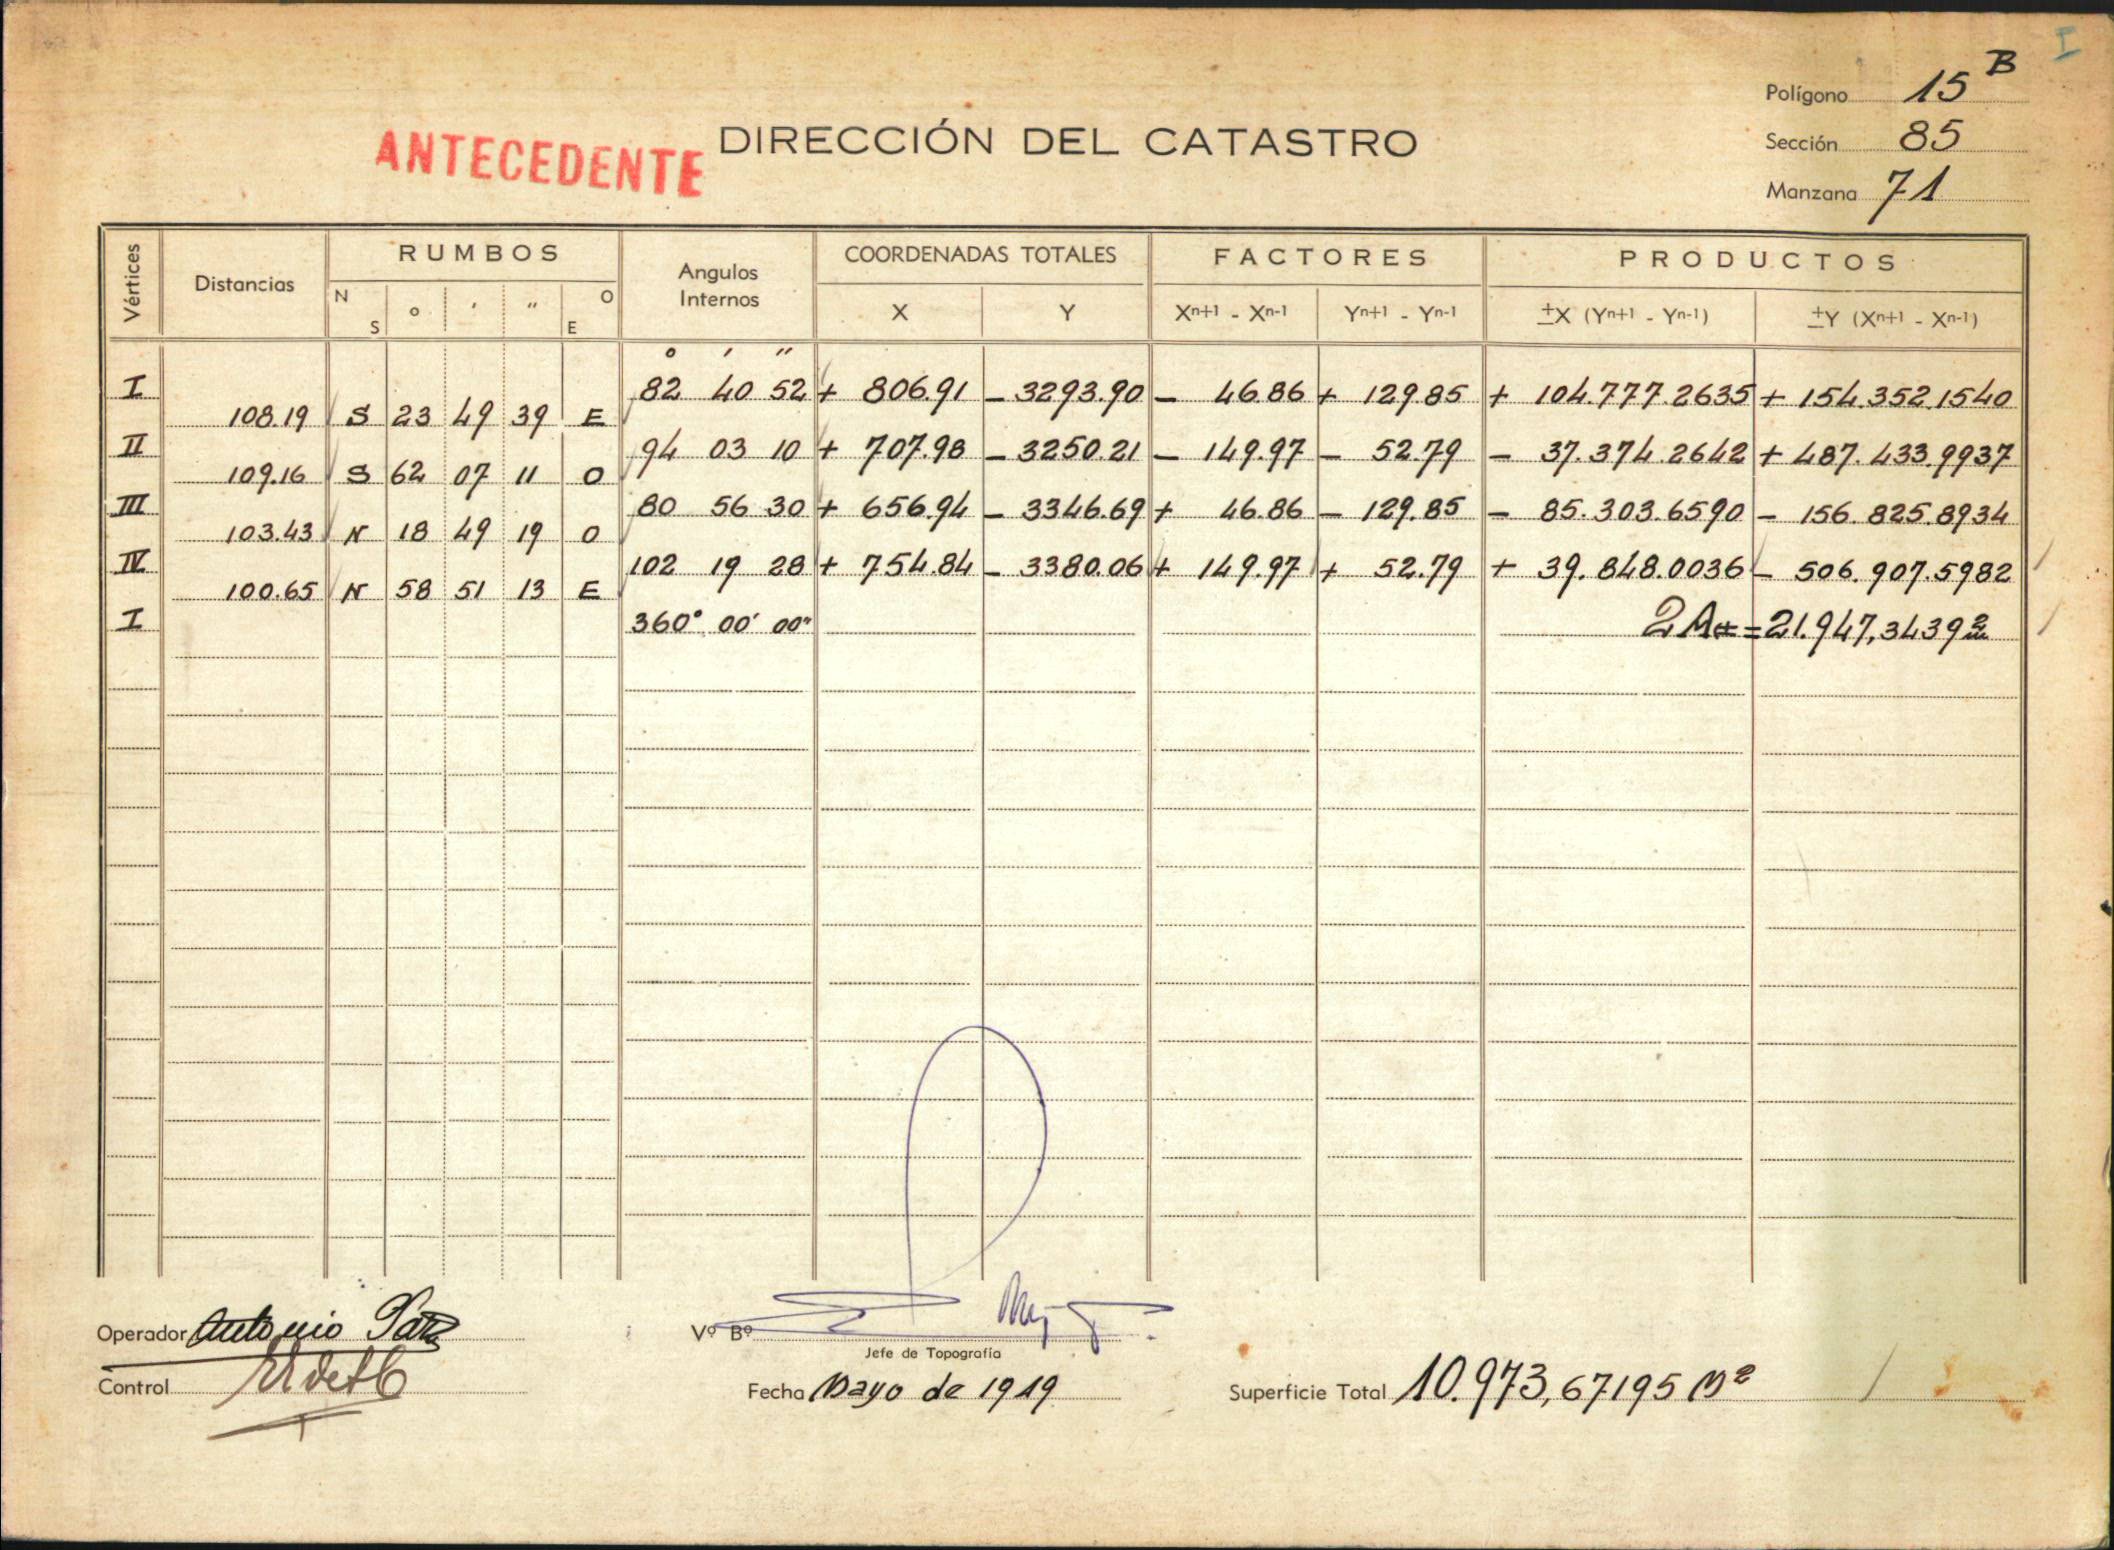 I
Polígono 15 B
ANTECEDENTE DIRECCIÓN DEL CATASTRO
Sección 85
Manzana 71
Vértices Distancias RUMBOS Angulos Internos COORDENADAS TOTALES FACTORES PRODUCTOS
N S ° ′ ″ O E X Y Xn+1 - Xn-1 Yn+1 - Yn-1 ±X (Yn+1 - Yn-1) ±Y (Xn+1 - Xn-1)
° ′ ″
I 82 40 52 + 806.91 - 3293.90 - 46.86 + 129.85 + 104.777.2635 + 154.352.1540
108.19 S 23 49 39 E
II 94 03 10 + 707.98 - 3250.21 - 149.97 - 52.79 - 37.374.2642 + 487.433.9937
109.16 S 62 07 11 O
III 80 56 30 + 656.94 - 3346.69 + 46.86 - 129.85 - 85.303.6590 - 156.825.8934
103.43 N 18 49 19 O
IV 102 19 28 + 754.84 - 3380.06 + 149.97 + 52.79 + 39.848.0036 - 506.907.5982
100.65 N 58 51 13 E
I 360° 00′ 00″ 2A = 21.947,3439 m²
Operador Antonio
Vº Bº
Jefe de Topografía
Control
Fecha Mayo de 1949
Superficie Total 10.973,67195 M²